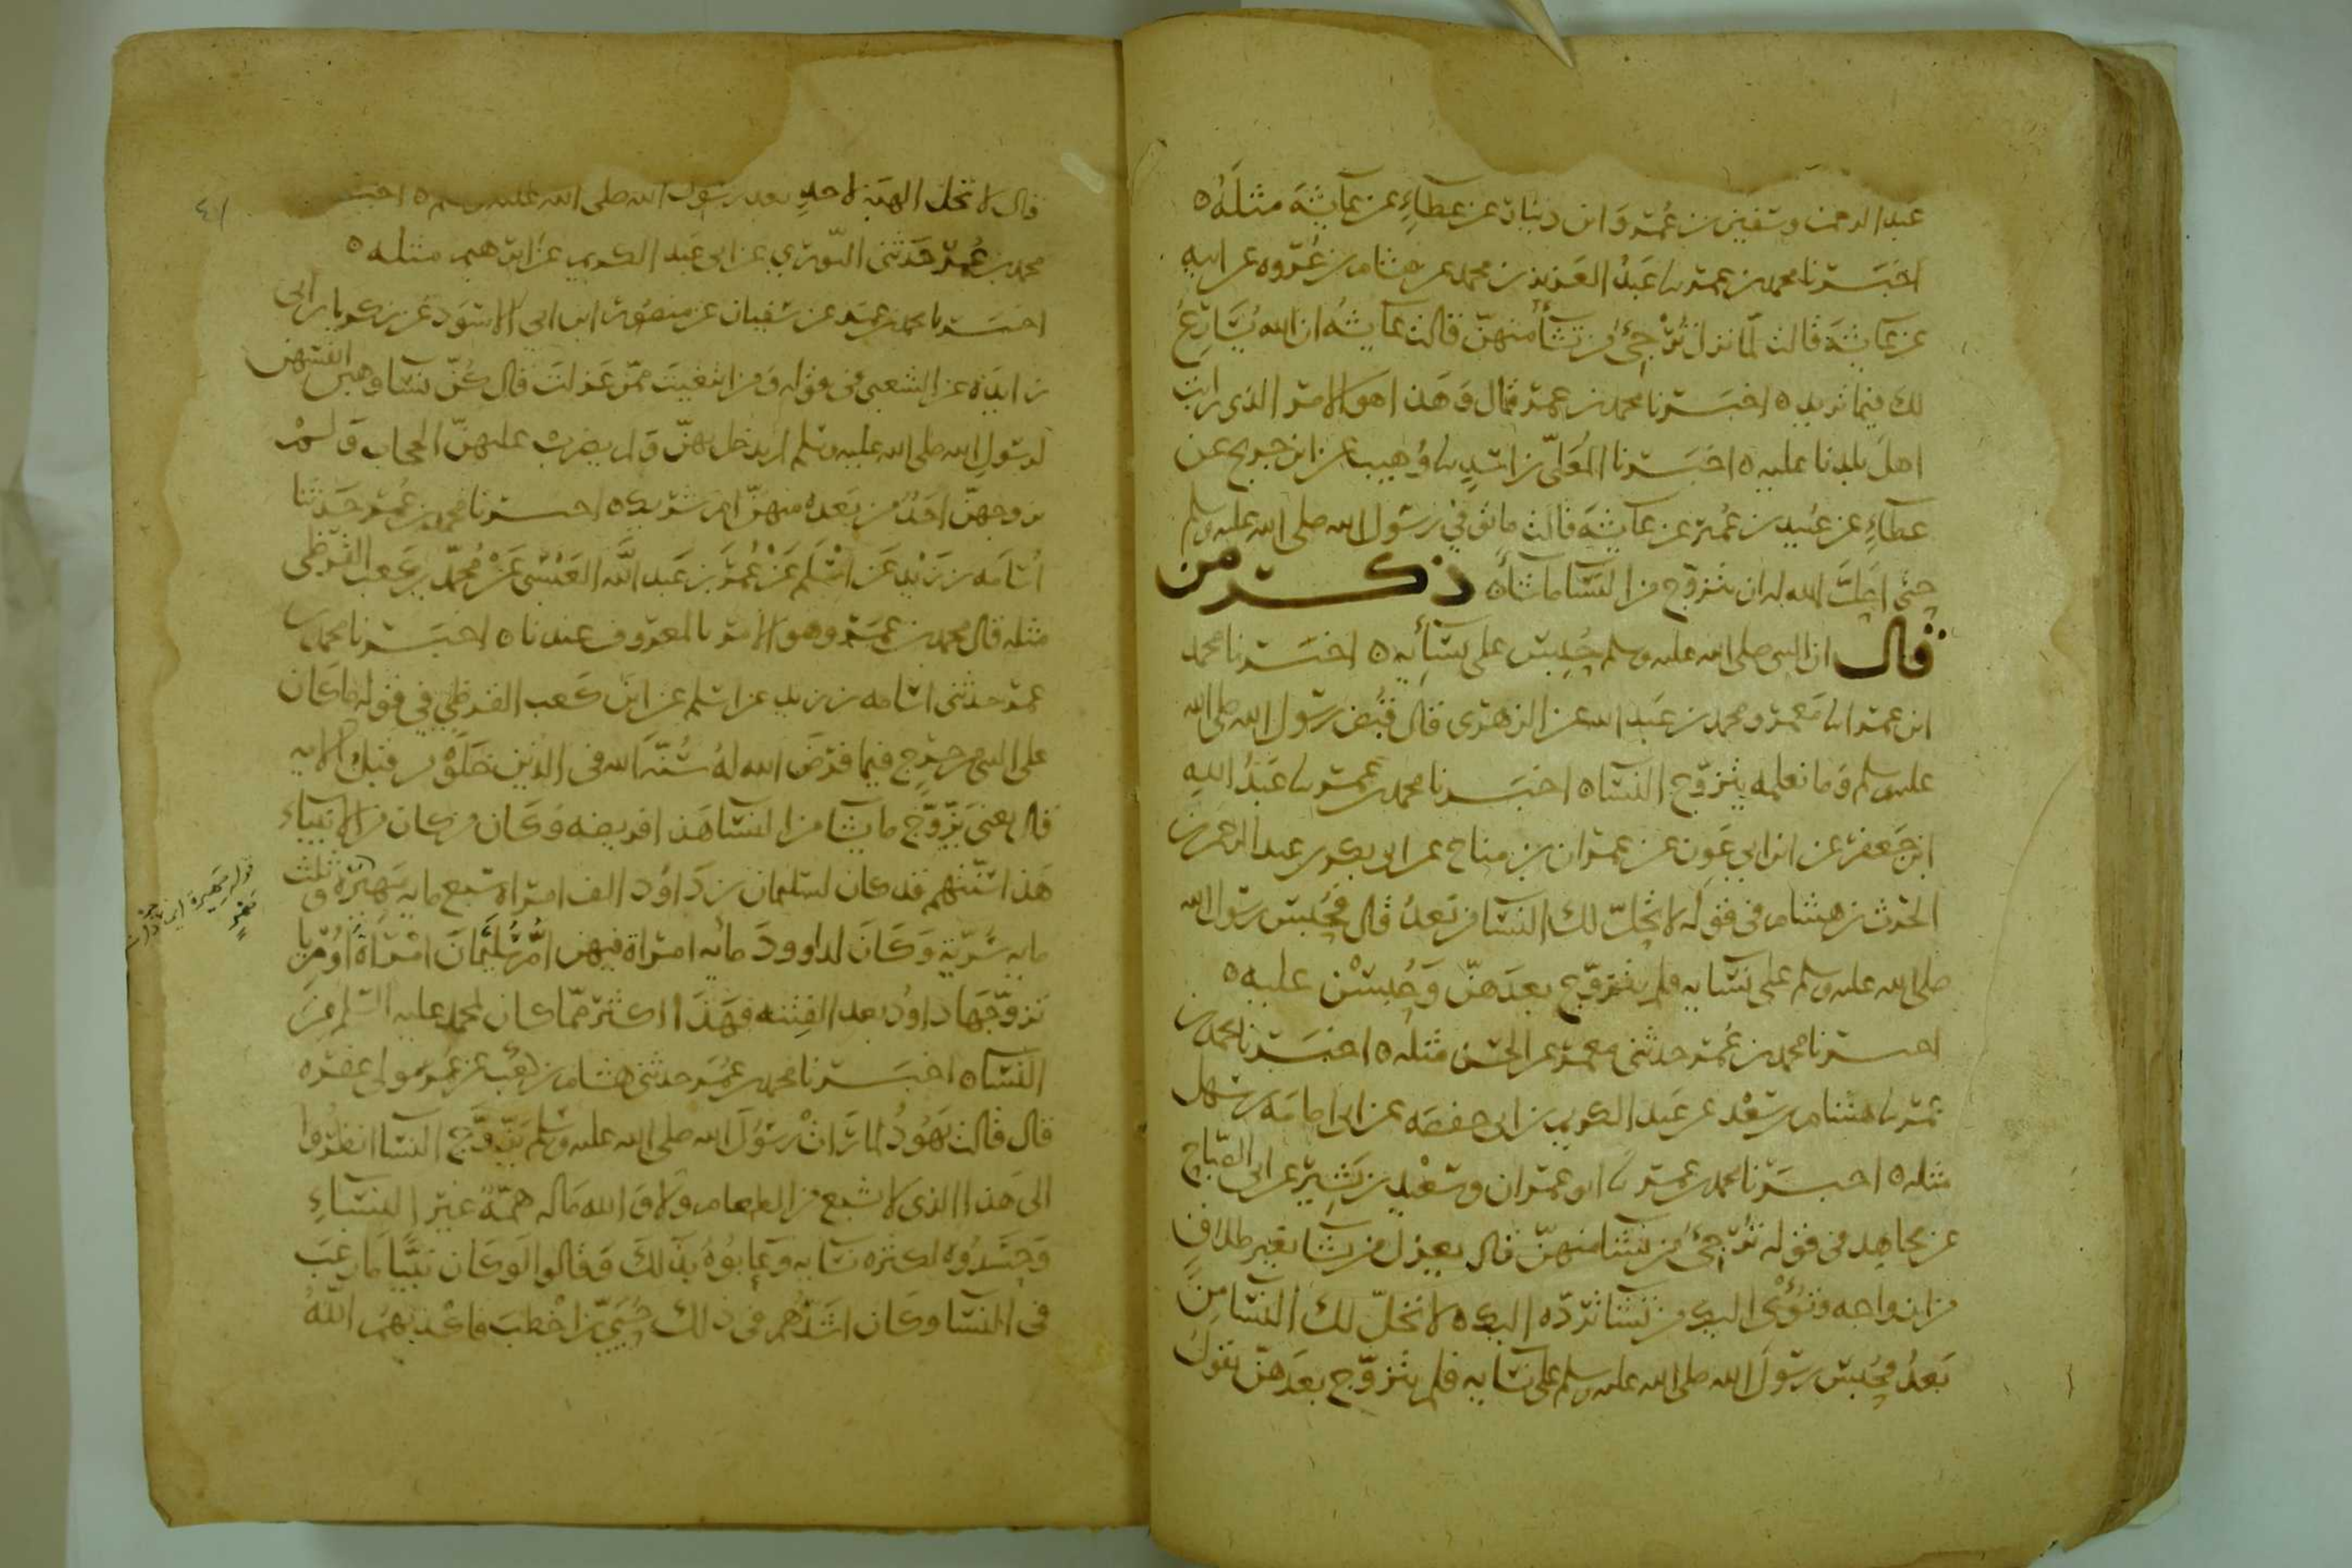 عبد الرحمن وسفين بن عمر وابن دينار عن عطاء عن عايشة مثله ه
اخبرنا محمد بن عمر نا عبد العزيز بن محمد عن هشام بن عروه عن ابيه
عن عايشة قالت لما نزل ترجئ من تشاء منهن قالت عايشه ان الله يسارع
لك فيما تريد ه اخبرنا محمد بن عمر قال وهذا هو الامر الذي رايت
اهل بلدنا عليه ه اخبرنا المعلى بن اسد نا وهيب عن ابن جريج عن
عطاء عن عبيد بن عمير عن عايشة قالت ما توفي رسول الله صلى الله عليه وسلم
حتى احل الله له ان يتزوج من النسا ما شاء ه ذكر من
قال ان النبي صلى الله عليه وسلم حبس على نسائه ه اخبرنا محمد
ابن عمر انا معمر ومحمد بن عبد الله عن الزهرى قال قبض رسول الله صلى الله
عليه وسلم وما نعلمه يتزوج النساء ه اخبرنا محمد بن عمر نا عبد الله
ابن جعفر عن ابن ابي عون عن عمران بن مناح عن ابي بكر بن عبد الرحمن بن
الحرث بن هشام في قوله لا تحل لك النسا من بعد قال حبس رسول الله
صلى الله عليه وسلم على نسايه فلم يتزوج بعدهن وحبسن عليه ه
اخبرنا محمد بن عمر حدثني معمر عن الحسن مثله ه اخبرنا محمد بن
عمر نا هشام بن سعد عن عبد الكريم بن ابي حفصه عن ابي امامة بن سهل
مثله ه اخبرنا محمد بن عمر نا ابو عمران وسعيد بن بشير عن ابي الصباح
عن مجاهد في قوله ترجئ من تشا منهن قال يعزل من يشا بغير طلاق
من ازواجه وتؤى اليك من تشا ترده اليك ه لا تحل لك النسا من
بعد فحبس رسول الله صلى الله عليه وسلم على نسايه فلم يتزوج بعدهن يقول
٤١
قال لا تحل الهبة لاحد بعد رسول الله صلى الله عليه وسلم ه
محمد بن عمر حدثني الثوري عن ابي عبد الكريم عن ابرهيم مثله ه
اخبرنا محمد بن عمر عن سفيان عن منصور ابن ابي الاسود عن زكريا بن ابي
زايدة عن الشعبي في قوله ومن ابتغيت ممن عزلت قال كن نسا وهبن انفسهن
لرسول الله صلى الله عليه وسلم لم يدخل بهن ولم يضرب عليهن الحجاب ولم
يزوجهن احد من بعده منهن ام شريك ه اخبرنا محمد بن عمر حدثنا
اسامه بن زيد عن اسلم عن عمر بن عبد الله العنسي عن محمد بن كعب القرظي
مثله قال محمد بن عمر وهو الامر المعروف عندنا ه اخبرنا محمد بن
عمر حدثني اسامه بن زيد عن اسلم عن ابن كعب القرظي في قوله ما كان
على النبي من حرج فيما فرض الله له سنة الله في الذين خلوا من قبل الايه
قال يعني يتزوج ما يشا من النسا هذا فريضه وكان من كان من الانبياء
هذا سنتهم قد كان لسليمان بن داود الف امراه سبع مايه مهيرة وثلث
مايه سرية وكان لداوود مائه امراة فيهن ام سليمان امراة اوريا
تزوجها داود بعد الفتنه فهذا اكثر مما كان لمحمد عليه السلم من
النساء ه اخبرنا محمد بن عمر حدثني هشام بن سعد عن عمر مولى غفره
قال قالت يهود لما رات رسول الله صلى الله عليه وسلم يتزوج النسا انظروا
الى هذا الذي لا يشبع من الطعام ولا والله ماله همة غير النساء
وحسدوه لكثرة نسايه وعابوه بذلك وقالوا لو كان نبيا ما رغب
في النسا وكان اشدهم في ذلك حيي بن اخطب فاكذبهم الله
قوله مهيرة اى